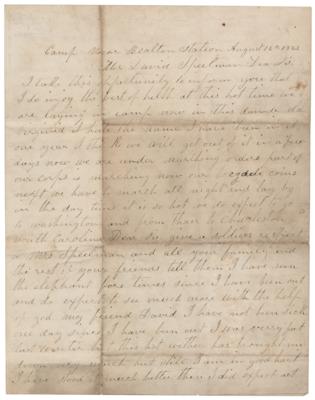 Camp Near Bealton Station August 12 1863
Mr David Speelman Dear Sir
I take this opportunity to inform you that
I do injoy the best of helth at this hot time we
are laying in camp now in this damd old
I hate the name I have been in it
one year I think we will get out of it in a few
days now we are under marching orders part of
our corps is marching now our brgade coms
next we have to march all night and lay by
in the day time it is so hot we do expect to go
to washington and from thair to Charleston
South Carolina Dear sir give a soldiers respect
Mrs Speelman and all your family and
the rest of your friends tell them I have seen
the elephant four times since I have ben out
and do expect to see much more with the help
of god my friend David I have not ben sick
one day since I have ben out I was very fat
but this hot wether has brought me
down very much but still I am in good hart
I have stood it much better then I did expect